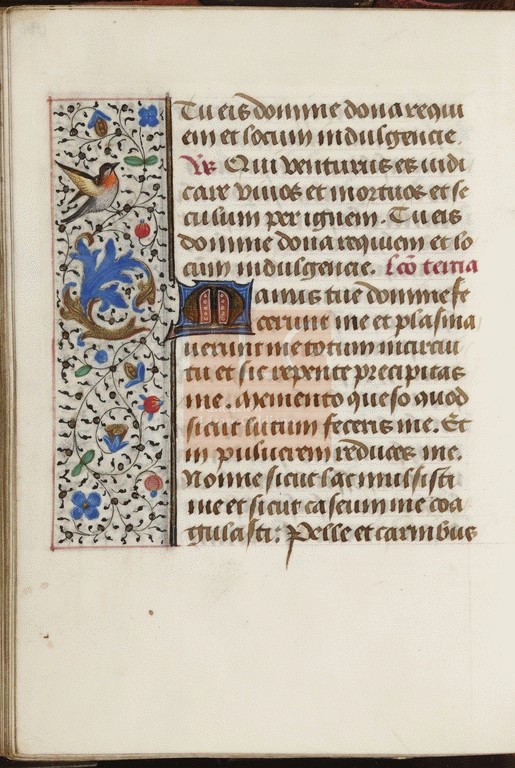 Tu eis domine dona requi
em et locum indulgencie.
Vs Qui venturus es iudi
care viuos et mortuos et se
culum per ignem. Tu eis
domine dona requiem et lo
cum indulgencie. Lco tercia
Manus tue domine fe
cerunt me et plasma
uerunt me totum incircui
tu et sic repente precipitas
me. Memento queso quod
sicut lutum feceris me. Et
in puluerem reduces me.
Nonne sicut lac mulsisti
me et sicut caseum me coa
gulasti. Pelle et carnibus